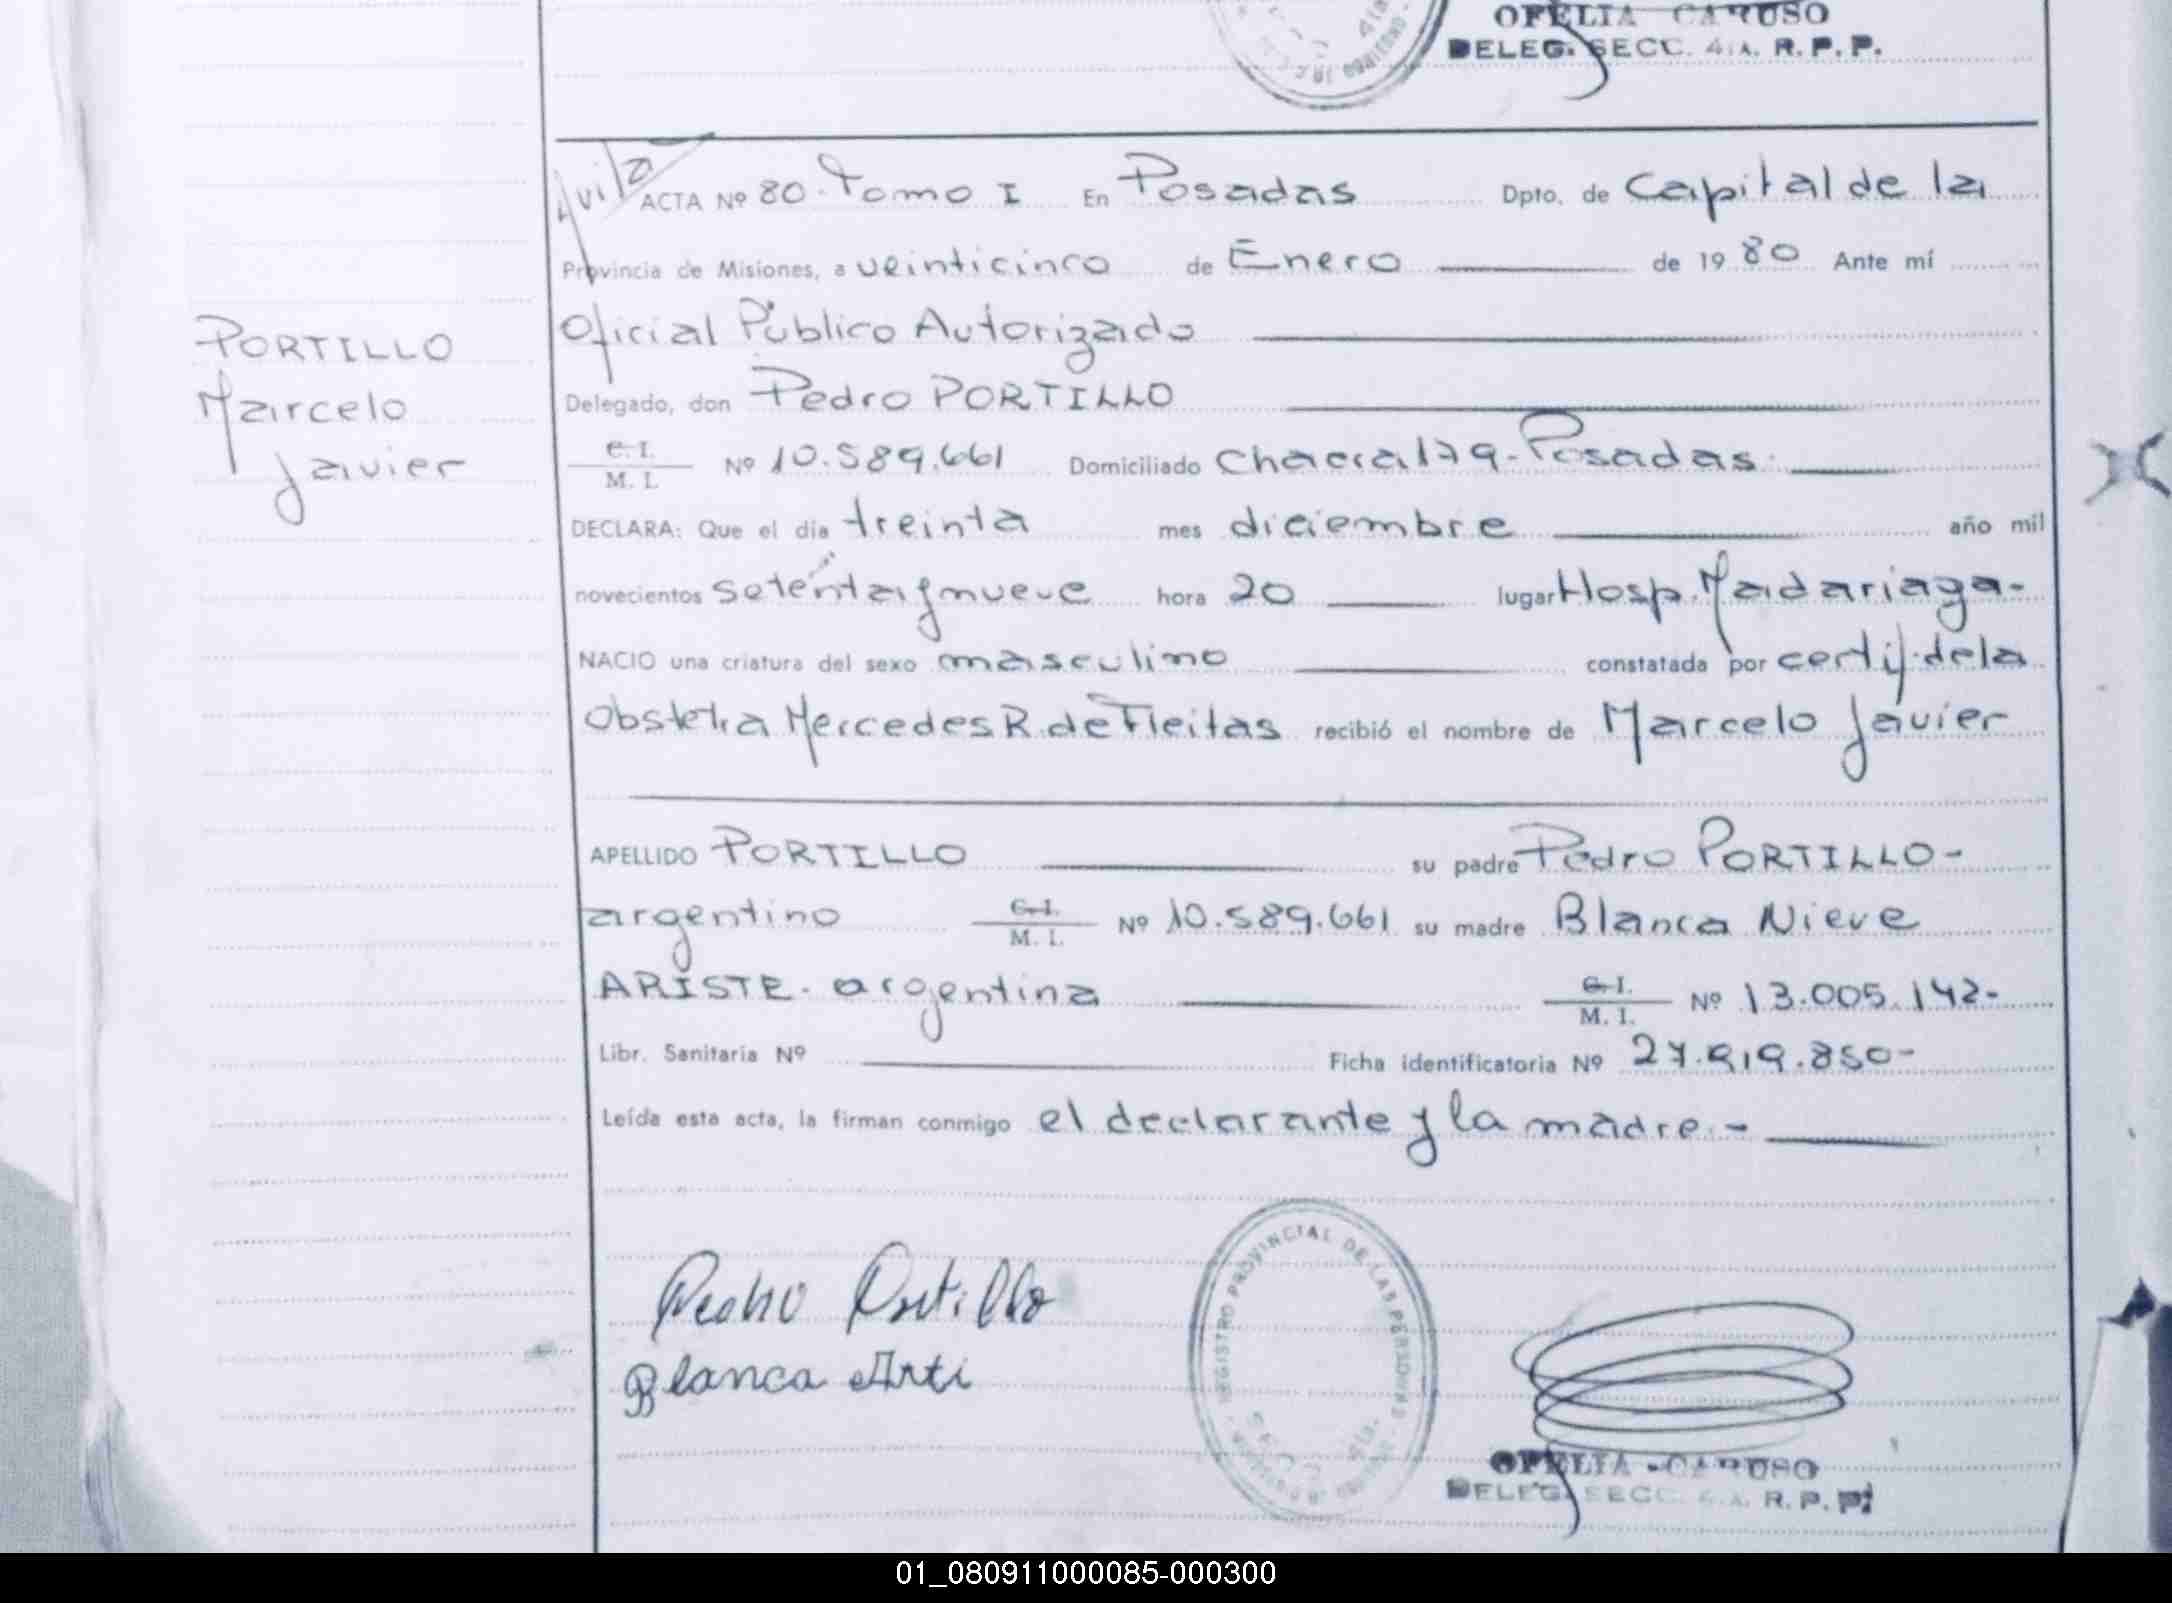 OFELIA CARUSO
DELEG. SECC. 4.A. R.P.P.
ACTA Nº 80. Tomo I En Posadas Dpto. de Capital de la
Provincia de Misiones, a veinticinco de Enero de 1980 Ante mí
Oficial Público Autorizado
Delegado, don Pedro PORTILLO
C.I.
M.I. Nº 10.589.661 Domiciliado Chacra 179-Posadas.
DECLARA: Que el día treinta mes diciembre año mil
novecientos setenta y nueve hora 20 lugar Hosp. Madariaga-
NACIO una criatura del sexo masculino constatada por certif. de la
Obstetra Mercedes R. de Fleitas recibió el nombre de Marcelo Javier
APELLIDO PORTILLO su padre Pedro PORTILLO-
argentino C.I.
M.I. Nº 10.589.661 su madre Blanca Nieve
ARISTE. argentina C.I.
M.I. Nº 13.005.142-
Libr. Sanitaria Nº Ficha identificatoria Nº 27.919.850-
Leída esta acta, la firman conmigo el declarante y la madre.-
PORTILLO
Marcelo
Javier
Pedro Portillo
Blanca Arti
REGISTRO PROVINCIAL DE LAS PERSONAS
OFELIA CARUSO
DELEG. SECC. 4.A. R.P.P.
01_080911000085-000300